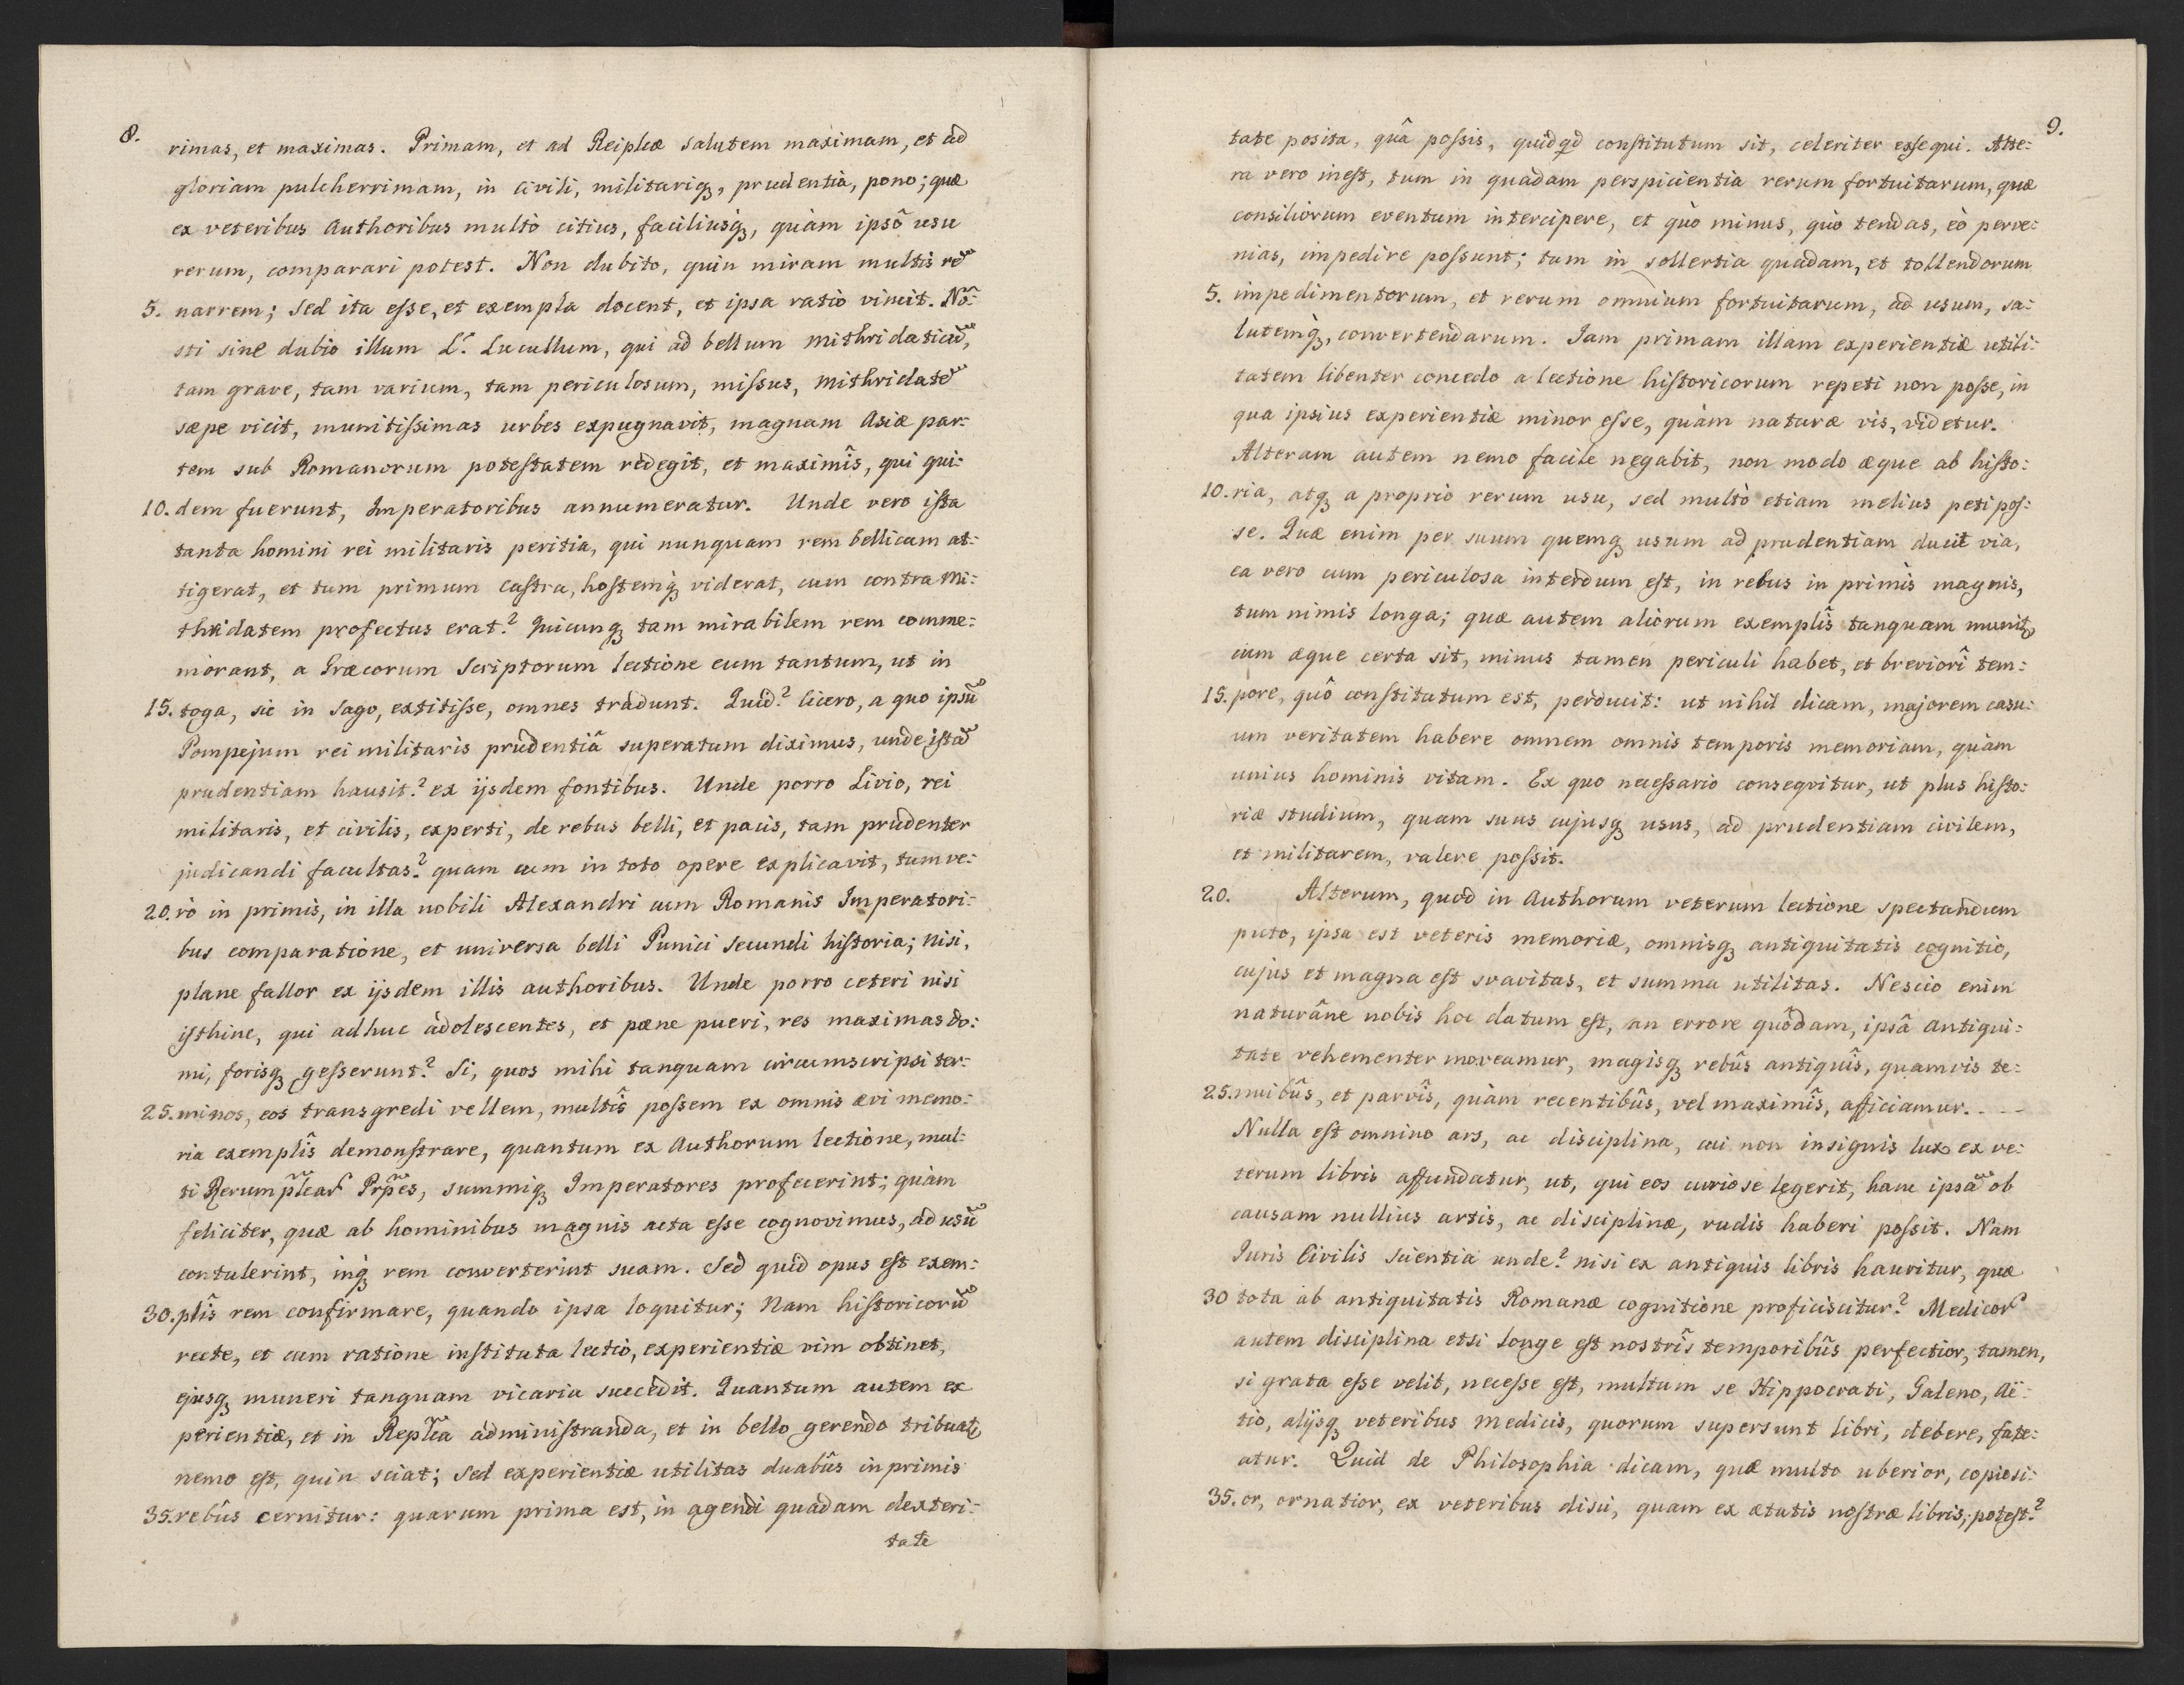 8.
rimas, et maximas. Primam, et ad Reiplcæ salutem maximam, et ad
gloriam pulcherrimam, in civili, militariq₃, prudentia, pono; quæ
ex veteribus Authoribus multò citius, faciliusq́₃, quàm ipsô usu
rerum, comparari potest. Non dubito, quin miram multis rẽ
5. narrem; sed ita eſse, et exempla docent, et ipsa ratio vincit. Nõ:
sti sine dubio illum L. Lucullum, qui ad bellum Mithridaticũ,
tam grave, tam varium, tam periculosum, miſsus, Mithridatẽ
sæpe vicit, munitiſsimas urbes expugnavit, magnam Asiæ par:
tem sub Romanorum poteſtatem redegit, et maximîs, qui qui:
10. dem fuerunt, Imperatoribus annumeratur. Unde vero iſta
tanta homini rei militaris peritia, qui nunquam rem bellicam at:
tigerat, et tum primum caſtra, hoſtemq́₃ viderat, cum contra Mi:
thridatem profectus erat? Quicunq₃ tam mirabilem rem comme:
morant, a Græcorum Scriptorum lectione eum tantum, ut in
15. toga, sic in sago, extitiſse, omnes tradunt. Quid? Cicero, a quo ipsũ
Pompejum rei militaris prudentiâ superatum diximus, unde iſtã
prudentiam hausit? ex ijsdem fontibus. Unde porro Livio, rei
militaris, et civilis, experti, de rebus belli, et pacis, tam prudenter
judicandi facultas? quam cum in toto opere explicavit, tum ve:
20. rò in primis, in illa nobili Alexandri cum Romanis Imperatori:
bus comparatione, et universa belli Punici secundi hiſtoria; nisi,
plane fallor ex ijsdem illis authoribus. Unde porro ceteri nisi
iſthinc, qui adhuc adolescentes, et pæne pueri, res maximas do:
mi, forisq₃ geſserunt? Si, quos mihi tanquam circumscripsi ter:
25. minos, eos transgredi vellem, multîs poſsem ex omnis ævi memo:
ria exemplîs demonſtrare, quantum ex Authorum lectione, mul:
ti Rerumpl̃car Prp̃es, summiq₃ Imperatores profecerint; quàm
feliciter, quæ ab hominibus magnis acta eſse cognovimus, ad usũ
contulerint, inq₃ rem converterint suam. Sed quid opus eſt exem:
30. plîs rem confirmare, quando ipsa loquitur; Nam hiſtoricorũ
recte, et cum ratione inſtituta lectio, experientiæ vim obtinet,
ejusq₃ muneri tanquam vicaria succedit. Quantum autem ex
perientiæ, et in Repl̃ca adminiſtranda, et in bello gerendo tribuat᷑
nemo eſt, quin sciat; sed experientiæ utilitas duabûs inprimis
35. rebûs cernitur: quarum prima est, in agendi quadam dexteri:
tate
9.
tate posita, quâ poſsis, quidqd conſtitutum sit, celeriter exſequi. Alte:
ra vero ineſt, tum in quadam perspicientia rerum fortuitarum, quæ
consiliorum eventum intercipere, et quò minus, quò tendas, eò perve:
nias, impedire poſsunt; tum in sollertia quadam, et tollendorum
5. impedimentorum, et rerum omnium fortuitarum, ad usum, sa:
lutemq́₃, convertendarum. Iam primam illam experientiæ utili:
tatem libenter concedo a lectione hiſtoricorum repeti non poſse, in
qua ipsius experientiæ minor eſse, quàm naturæ vis, videtur.
Alteram autem nemo facile negabit, non modo æque ab hiſto:
10. ria, atq₃ a proprio rerum usu, sed multò etiam melius peti poſ:
se. Quæ enim per suum quemq₃ usum ad prudentiam ducit via,
ea vero cum periculosa interdum eſt, in rebus in primis magnis,
tum nimis longa; quæ autem aliorum exemplîs tanquam munit᷑
cum æque certa sit, minus tamen periculi habet, et breviorî tem:
15. pore, quô conſtitutum est, perducit: ut nihil dicam, majorem casu:
um veritatem habere omnem omnis temporis memoriam, quàm
unius hominis vitam. Ex quo neceſsario conseqvitur, ut plus hiſto:
riæ studium, quam suus cujusq₃ usus, ad prudentiam civilem,
et militarem, valere poſsit.
20. Alterum, quod in Authorum veterum lectione spectandum
puto, ipsa est veteris memoriæ, omnisq₃ antiquitatis cognitio,
cujus et magna eſt svavitas, et summa utilitas. Nescio enim
naturâne nobis hoc datum eſt, an errore quôdam, ipsâ antiqui:
tate vehementer moveamur, magisq₃ rebûs antiquîs, quamvis te:
25. nuibûs, et parvîs, quàm recentibûs, vel maximîs, afficiamur. - - -
Nulla eſt omnino ars, ac disciplina, cui non insignis lux ex ve:
terum libris affundatur, ut, qui eos curiose legerit, hanc ipsã ob
causam nullius artis, ac disciplinæ, rudis haberi poſsit. Nam
Iuris Civilis scientia unde? nisi ex antiquis libris hauritur, quæ
30 tota ab antiquitatis Romanæ cognitione proficiscitur? Medicor
autem disciplina etsi longe eſt nostrîs temporibûs perfectior, tamen,
si grata eſse velit, neceſse eſt, multum se Hippocrati, Galeno, Aë:
tio, alijsq₃ veteribus Medicis, quorum supersunt libri, debere, fate:
atur. Quid de Philosophia dicam, quæ multo uberior, copiosi:
35. or, ornatior, ex veteribus disci, quam ex ætatis noſtræ libris, poteſt?